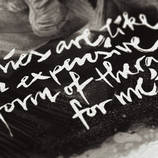 vies are like
expensive
form of thera
for me